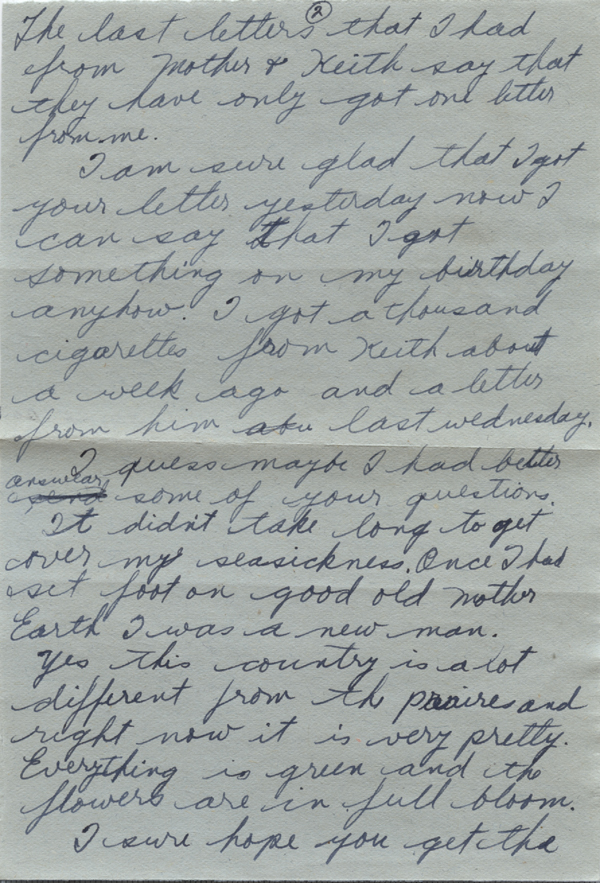 2
The last letters that I had
from Mother & Keith say that
they have only got one letter
from me.
I am sure glad that I got
your letter yesterday now I
can say that I got
something on my birthday
anyhow. I got a thousand
cigarettes from Keith about
a week ago and a letter
from him abu last wednesday.
I guess maybe I had better
answear
send some of your questions.
It didn't take long to get
over my seasickness. Once I had
set foot on good old Mother
Earth I was a new man.
Yes this country is a lot
different from th praires and
right now it is very pretty.
Everything is green and the
flowers are in full bloom.
I sure hope you get the